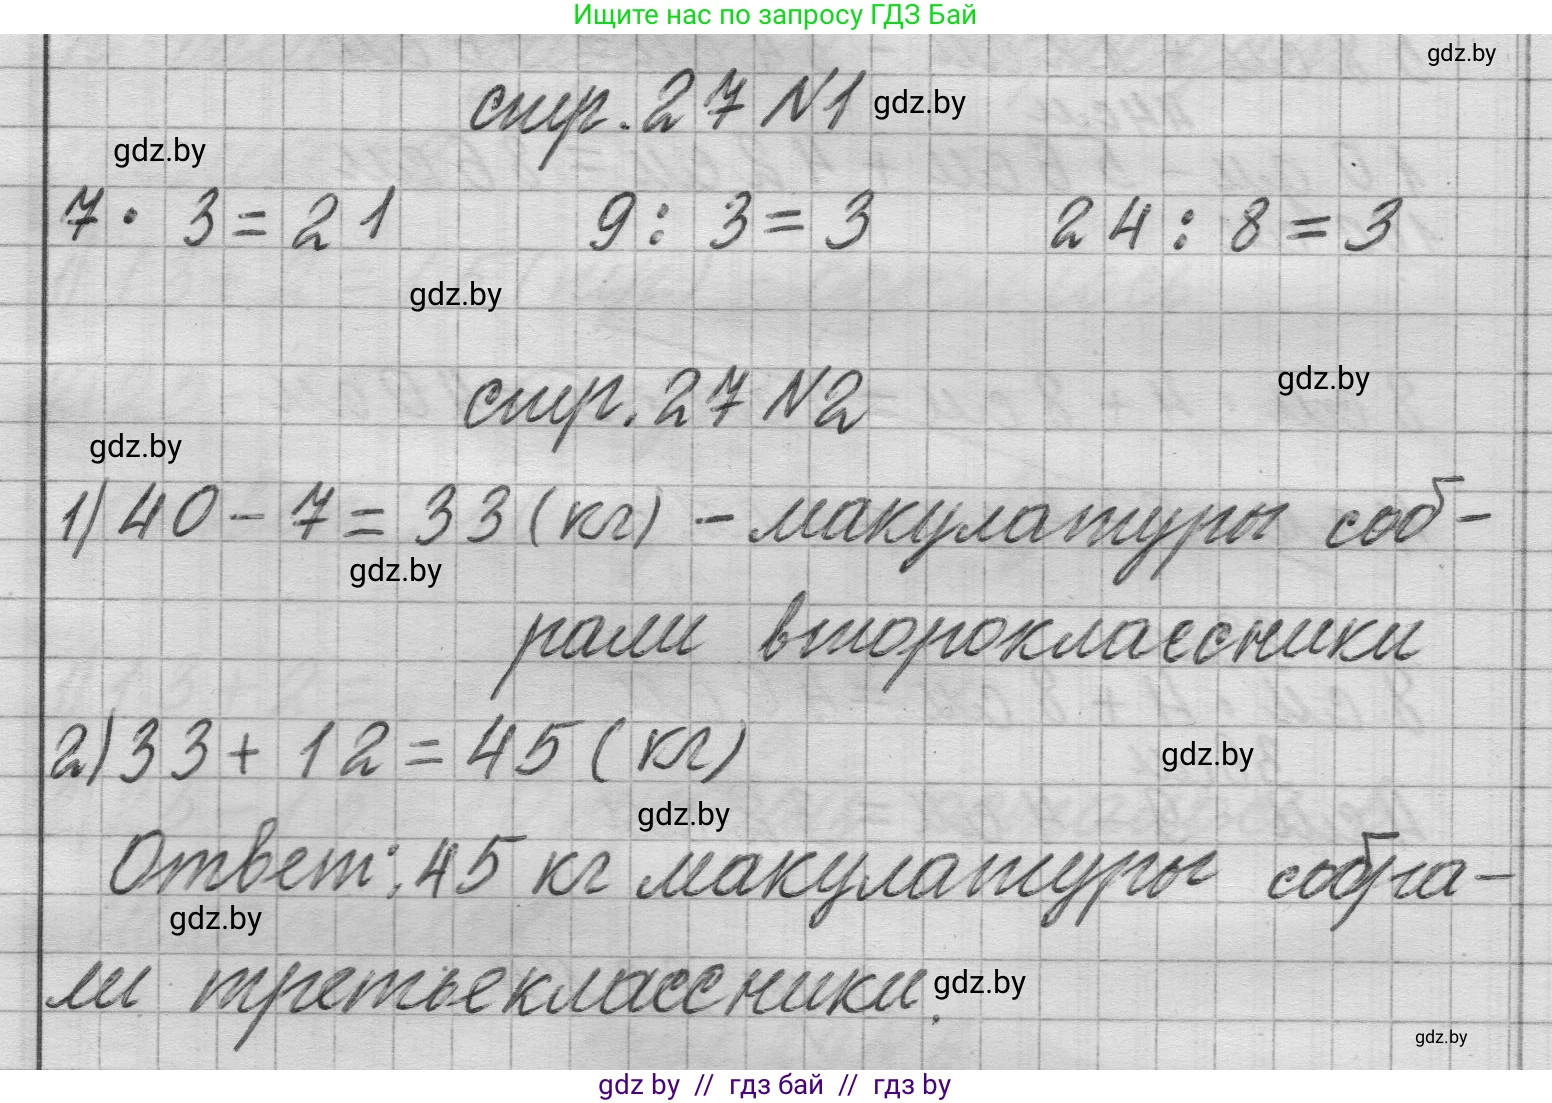 Ищите нас по запросу ГДЗ Бай
gdz.by
стр. 27 №1 gdz.by
gdz.by
7 · 3 = 21 9 : 3 = 3 24 : 8 = 3
gdz.by
стр. 27 №2
gdz.by
gdz.by
1) 40 - 7 = 33 (кг) - макулатуры соб-
gdz.by
рали второклассники
2) 33 + 12 = 45 (кг)
gdz.by
gdz.by
Ответ: 45 кг макулатуры собра-
gdz.by
ли третьеклассники.
gdz.by
gdz.by
gdz by // гдз бай // гдз by